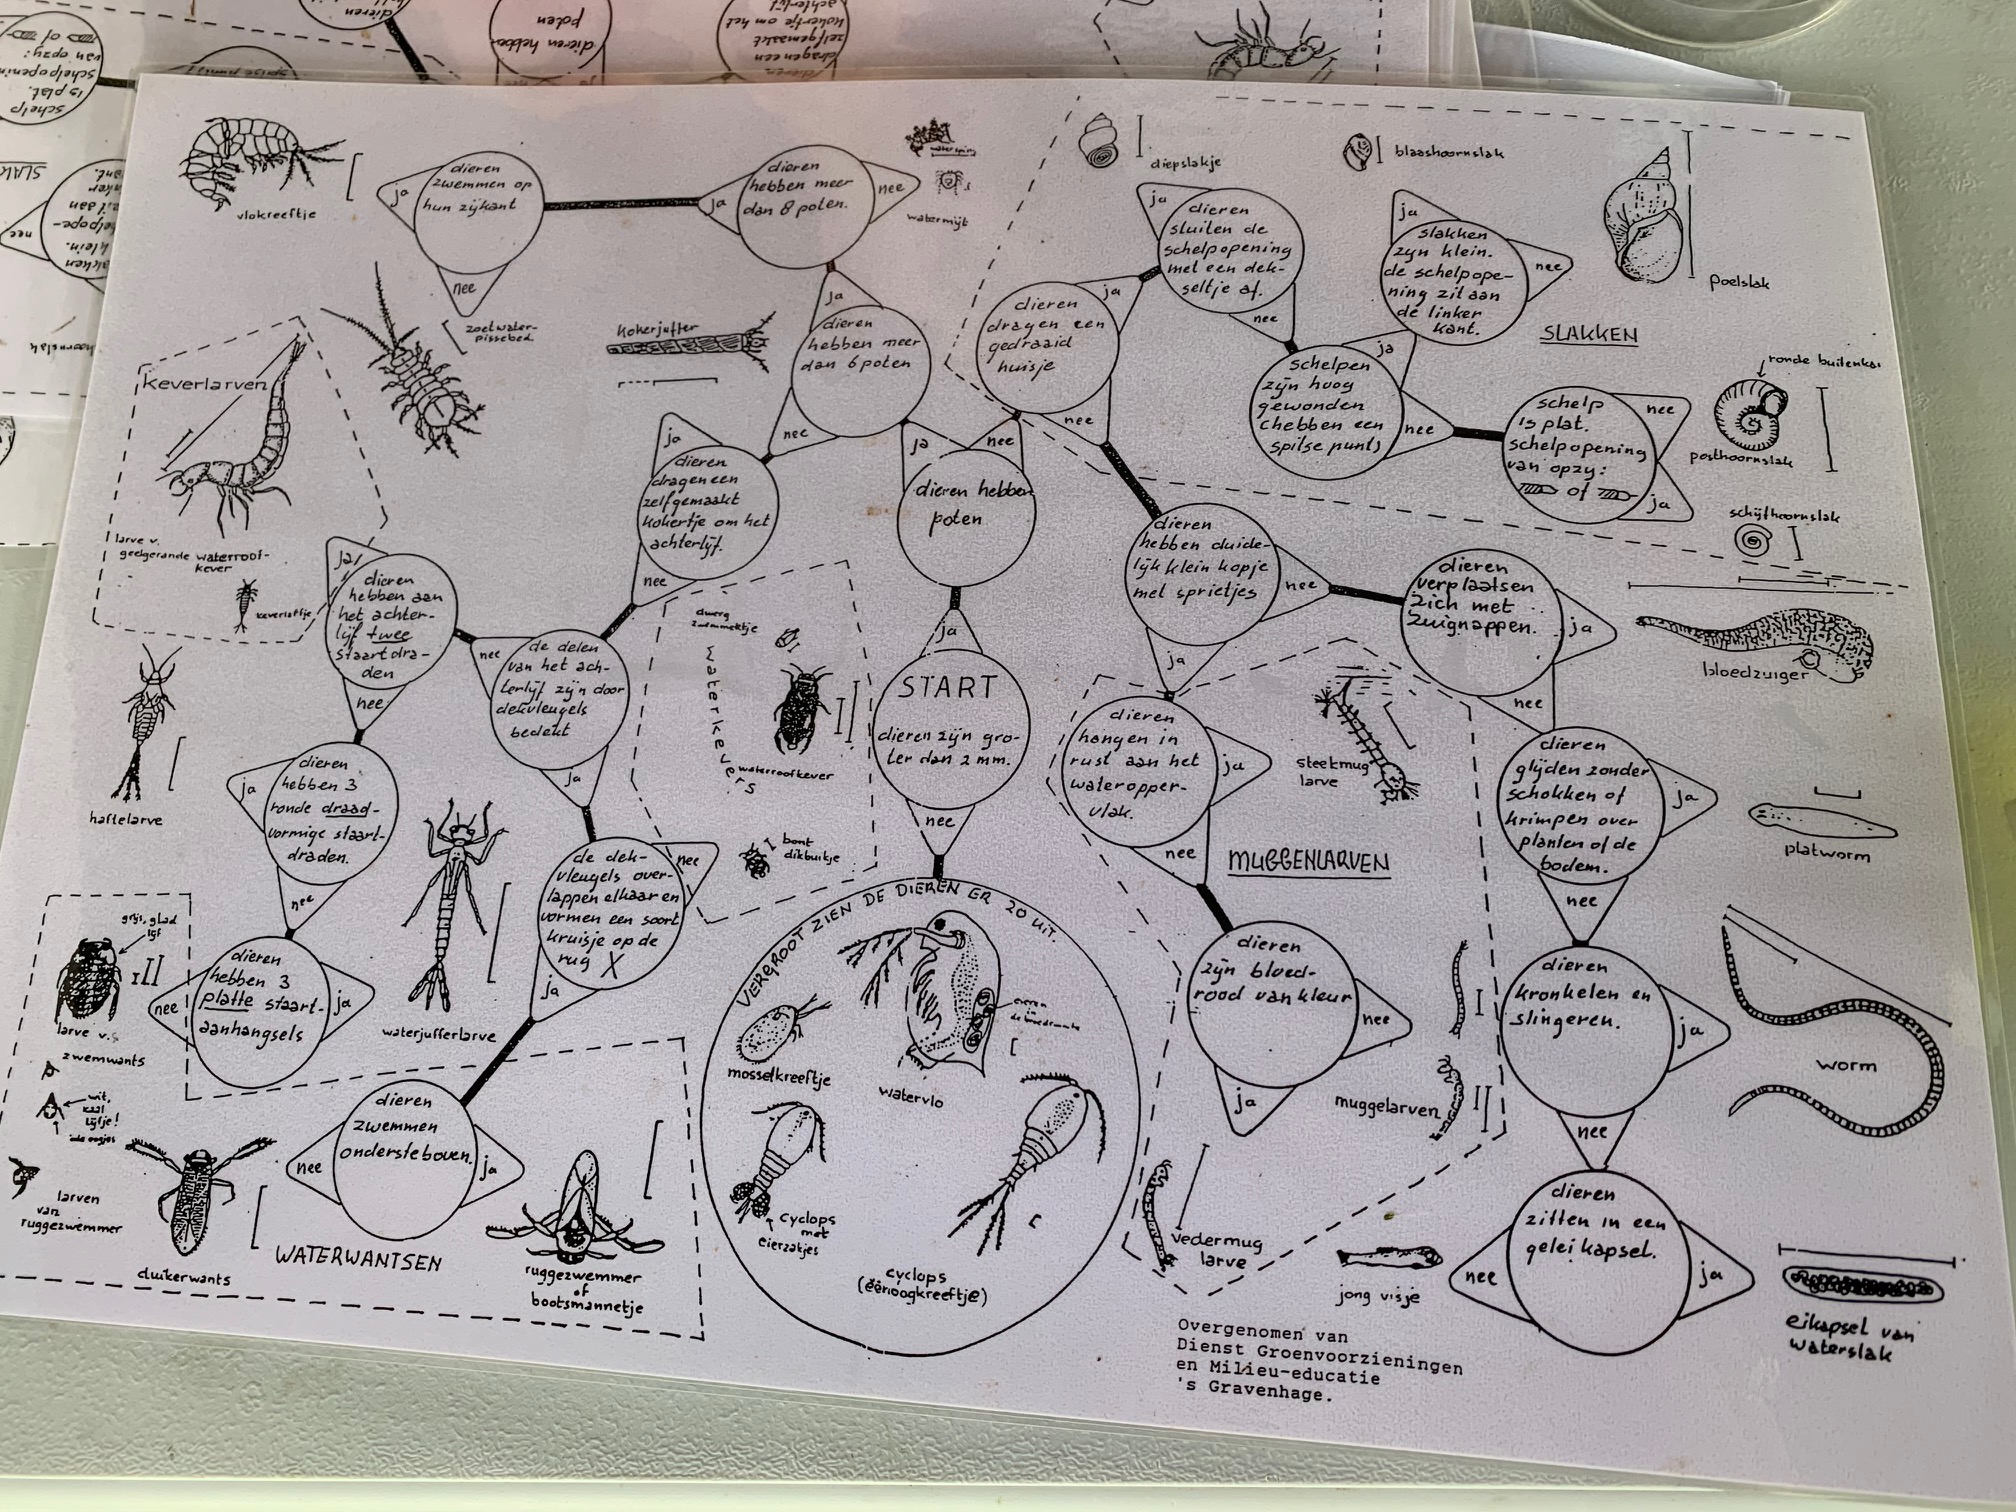 vlokreeftje
ja
dieren
zwemmen op
hun zijkant
nee
ja
dieren
hebben meer
dan 8 poten.
nee
watermijt
zoetwater-
pissebed
kokerjuffer
ja
dieren
hebben meer
dan 6 poten
nee
ja
dieren
dragen een
zelfgemaakt
kokertje om het
achterlijf.
nee
keverlarven
larve v.
geelgerande waterroof-
kever
ja
dieren
hebben aan
het achter-
lijf twee
staartdra-
den
nee
nee
de delen
van het ach-
terlijf zijn door
dekvleugels
bedekt
ja
haftelarve
ja
dieren
hebben 3
ronde draad-
vormige staart-
draden.
nee
waterjufferlarve
nee
dieren
hebben 3
platte staart-
aanhangsels
ja
grijs, glad
lijf
larve v.
zwemwants
wit,
larven
van
ruggezwemmer
duikerwants
WATERWANTSEN
nee
dieren
zwemmen
ondersteboven.
ja
ruggezwemmer
of
bootsmannetje
de dek-
vleugels over-
lappen elkaar en
vormen een soort
kruisje op de
rug X
nee
ja
waterkevers
dwerg
waterroofkever
bont
dikbuikje
ja
nee
dieren hebben
poten
ja
START
dieren zijn gro-
ter dan 2 mm.
nee
VERGROOT ZIEN DE DIEREN ER ZO UIT.
mosselkreeftje
watervlo
eieren
in
de broedruimte
cyclops
met
eierzakjes
cyclops
(éénoogkreeftje)
diepslakje
blaashoornslak
ja
dieren
sluiten de
schelpopening
met een dek-
seltje af.
nee
dieren
dragen een
gedraaid
huisje
ja
nee
ja
slakken
zijn klein.
de schelpope-
ning zit aan
de linker
kant.
nee
poelslak
SLAKKEN
ja
schelpen
zijn hoog
gewonden
(hebben een
spitse punt)
nee
schelp
is plat.
schelpopening
van opzij:
of
nee
ja
ronde buitenka
posthoornslak
schijfhoornslak
dieren
hebben duide-
lijk klein kopje
met sprietjes
nee
ja
dieren
verplaatsen
zich met
zuignappen.
ja
nee
bloedzuiger
dieren
hangen in
rust aan het
wateropper-
vlak.
ja
nee
steekmug
larve
MUGGENLARVEN
dieren
glijden zonder
schokken of
krimpen over
planten of de
bodem.
ja
nee
platworm
dieren
zijn bloed-
rood van kleur
nee
ja
muggelarven
vedermug
larve
dieren
kronkelen en
slingeren.
ja
nee
worm
dieren
zitten in een
gelei kapsel.
nee
ja
jong visje
eikapsel van
waterslak
Overgenomen van
Dienst Groenvoorzieningen
en Milieu-educatie
's Gravenhage.